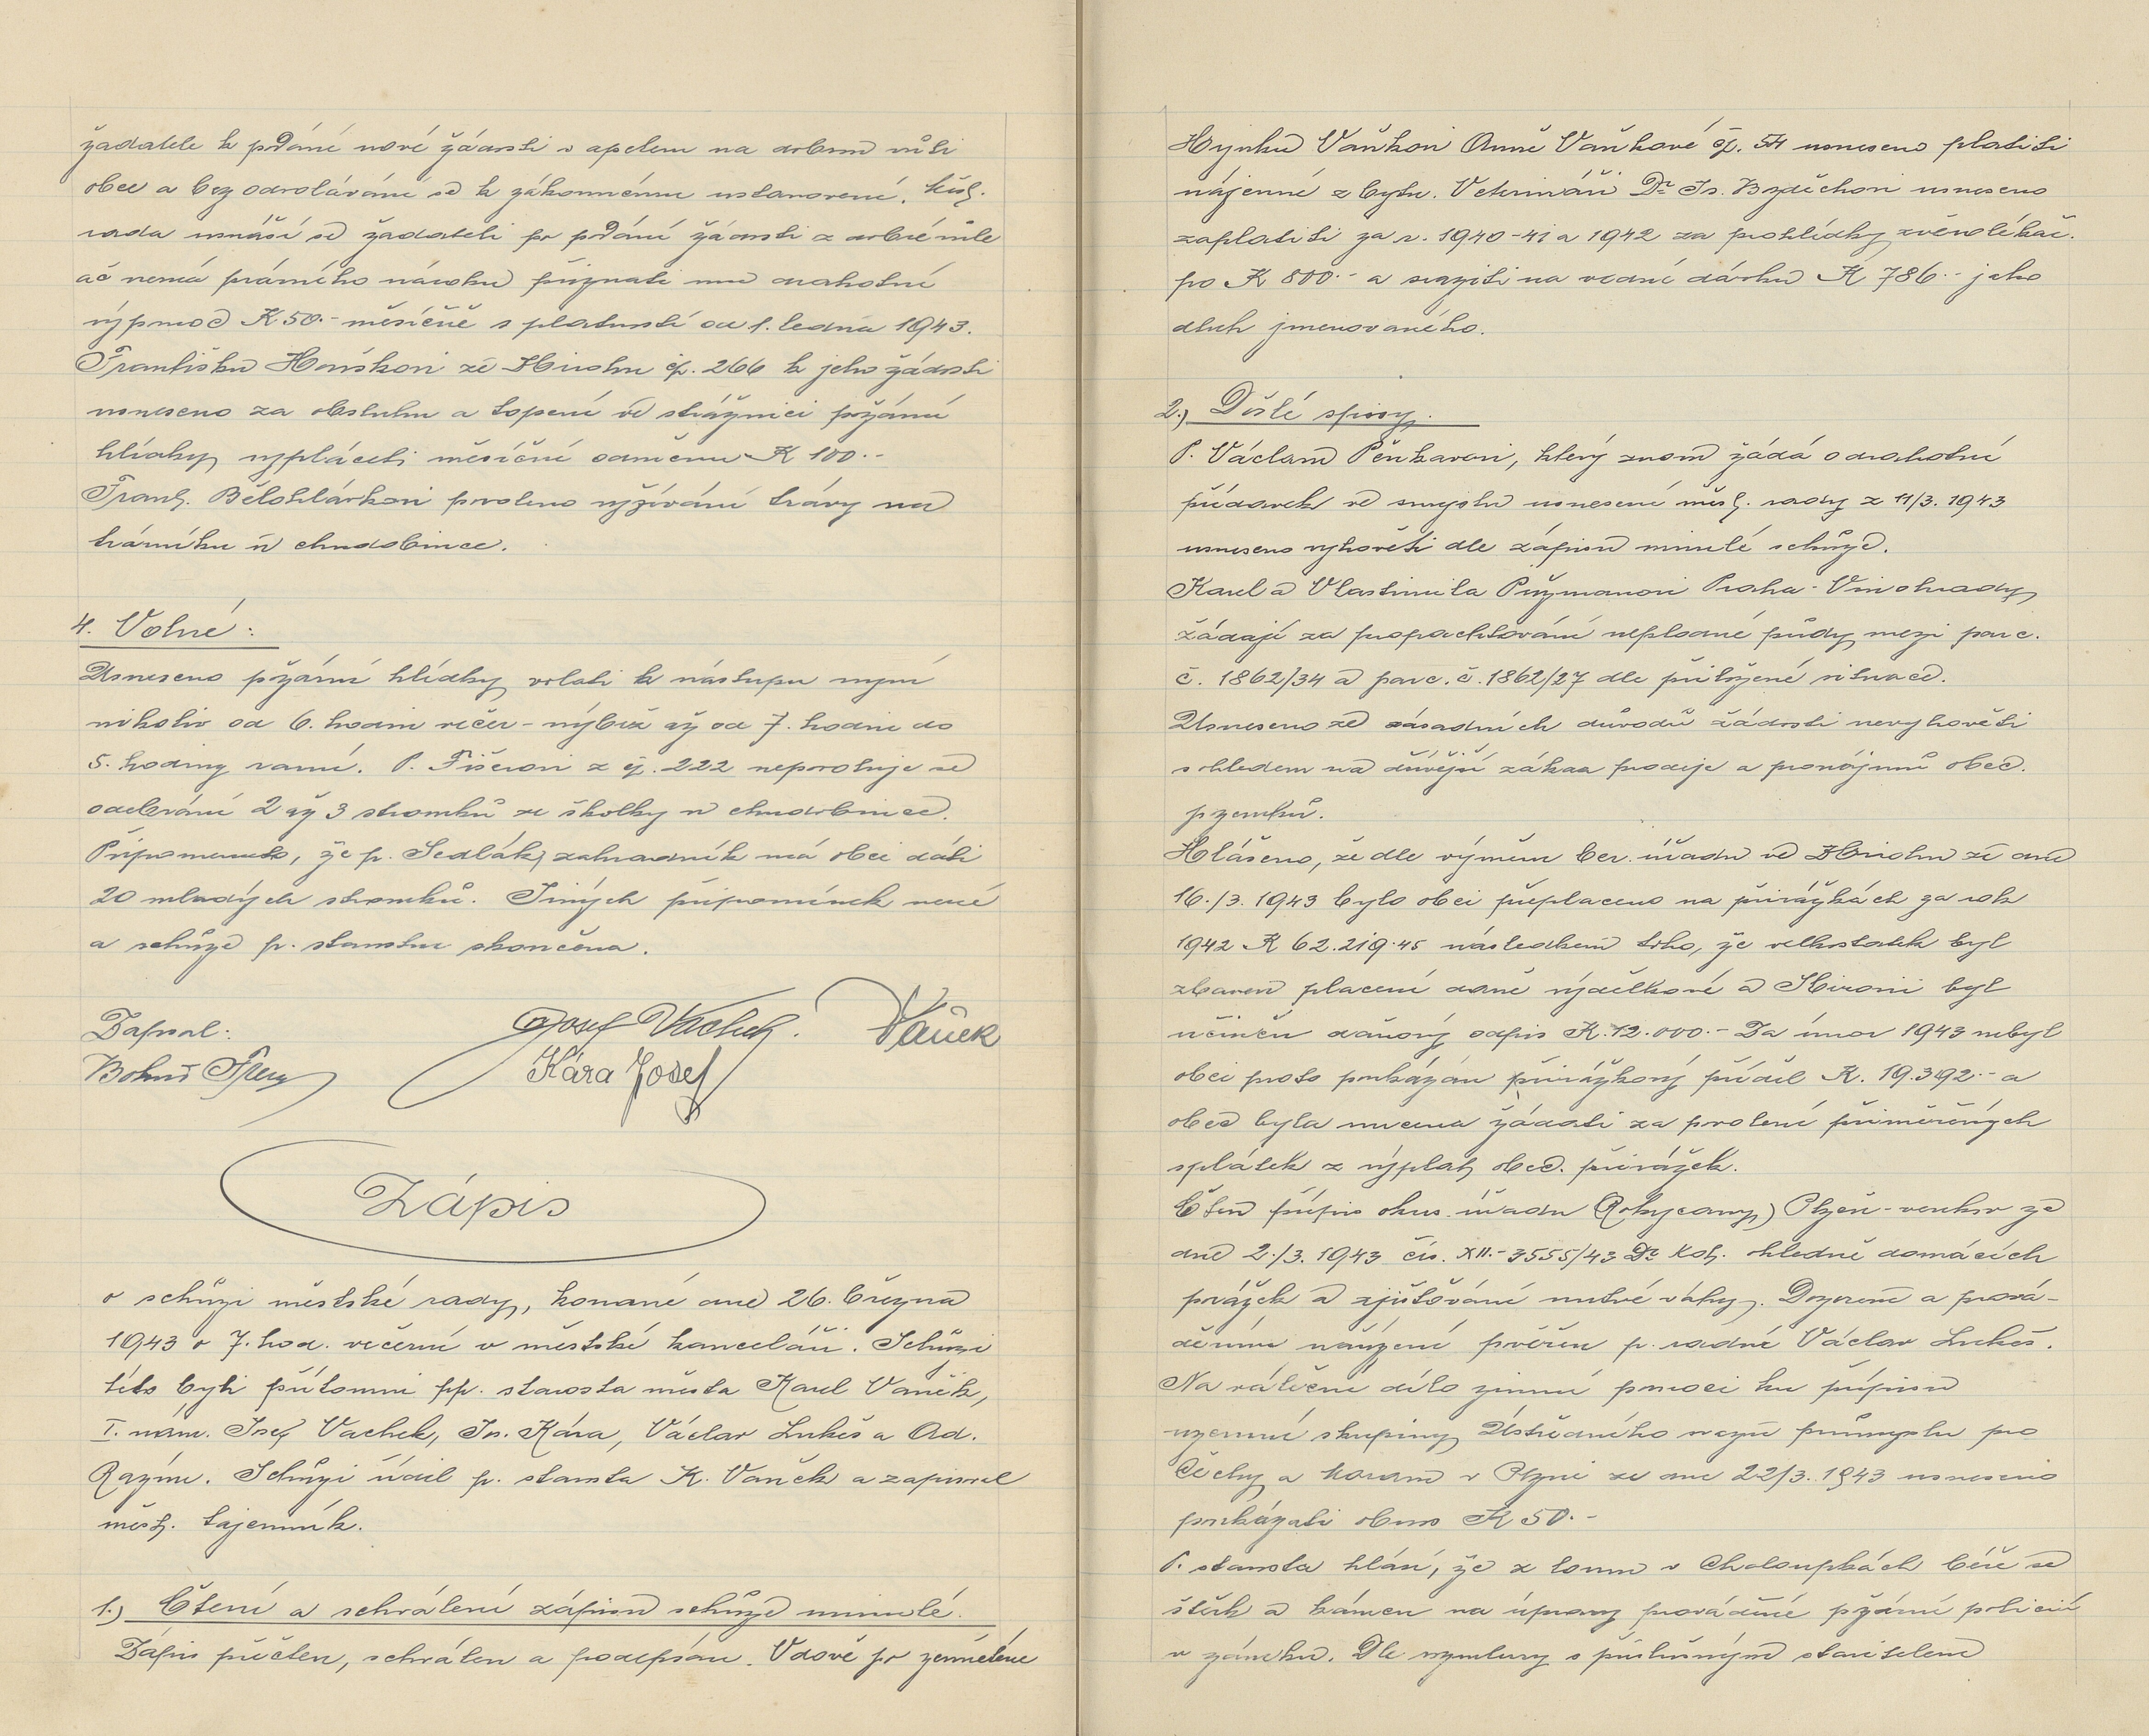 žadatele k podání nové žádosti s apelem na dobrou vůli
obce a bez odvolávání se k zákonnému ustanovení. Měst.
rada usnáší se žadateli po podání žádosti z dobré vůle
ač nemá právního nároku přiznati mu drahotní
výpomoc K 50.- měsíčně s platností od 1. ledna 1943.
Františku Horskovi ze Zbirohu čp. 266 k jeho žádosti
usneseno za obsluhu a topení ve strážnici požární
hlídky vypláceti měsíční odměnu K 100.-
Frant. Bělohlávkovi povoleno vyžívání trávy na
trávníku u chudobince.
4. Volné:
Usneseno požární hlídky volati k nástupu nyní
nikoliv od 6. hodin večer - nýbrž až od 7. hodin do
5. hodiny ranní. P. Fišerovi z čp. 222 nepovoluje se
odebrání 2 až 3 stromků ze školky u chudobince.
Připomenuto, že p. Sedlák, zahradník má obci dáti
20 mladých stromků. Jiných připomínek není
a schůze p. starostou skončena.
Zapsal: Josef Vachek. Vaněk
Bohuš Kára Josef
Zápis
o schůzi městské rady, konané dne 26. března
1943 o 7. hod. večerní v městské kanceláři. Schůzi
této byli přítomni pp. starosta města Karel Vaněk,
I. nám. Josef Vachek, Jos. Kára, Václav Lukeš a Ad.
Razým. Schůzi řídil p. starosta K. Vaněk a zapisoval
měst. tajemník.
1.) Čtení a schválení zápisu schůze minulé.
Zápis přečten, schválen a podepsán. Vdově po zemřelém
Hynku Vaňkovi Anně Vaňkové čp. 54 usneseno platiti
nájemné z bytu. Veterináři Dr. Js. Bzděchovi usneseno
zaplatiti za r. 1940-41 a 1942 za prohlídky zvěrolékař.
po K 800.- a sraziti na vodné dávku K 786.- jako
dluh jmenovaného.
2.) Došlé spisy.
P. Václavu Pěnkavovi, který znovu žádá o drahotní
přídavek ve smyslu usnesení měst. rady z 11/3. 1943
usneseno vyhověti dle zápisu minulé schůze.
Karel a Vlastimila Průžmanovi Praha-Vinohrady,
žádají za propachtování neplodné půdy mezi parc.
č. 1862/34 a parc. č. 1862/27 dle přiložené situace.
Usneseno ze zásadních důvodů žádosti nevyhověti
s ohledem na dřívější zákaz prodeje a pronájmů obec.
pozemků.
Hlášeno, že dle výměru ber. úřadu ve Zbirohu ze dne
16./3. 1943 bylo obci přeplaceno na přirážkách za rok
1942 K 62.219.45 následkem toho, že velkostatek byl
zbaven placení daně výdělkové a byl
učiněn daňový odpis K. 12.000.- Za únor 1943 nebyl
obci proto poukázán přirážkový příděl K. 19.392.- a
obec byla nucena žádati za povolení přiměřených
splátek z výplat obec. přirážek.
Čten přípis okres. úřadu (Rokycany) Plzeň-venkov ze
dne 2./3. 1943 čís. XII.-3555/43 Dr. Kot. ohledně domácích
porážek a zjišťování mrtvé váhy. Dozorem a prová-
děním nařízení pověřen p. radní Václav Lukeš.
Na válečné dílo zimní pomoci ku přípisu
územní skupiny Ústředního svazu průmyslu pro
Čechy a Moravu v Plzni ze dne 22/3. 1943 usneseno
poukázati obnos K 50.-
P. starosta hlásí, že z lomu v Chaloupkách béře se
štěrk a kámen na úpravy prováděné požární policií
v zámku. Dle rozmluvy s příslušným stavitelem